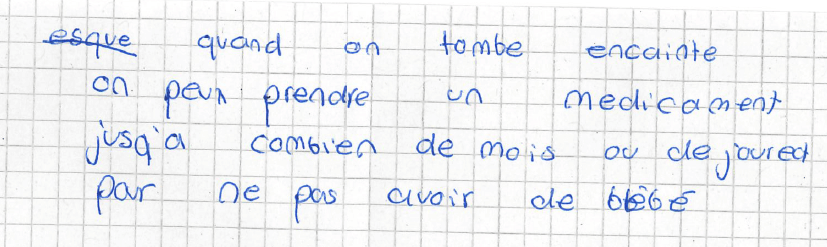 esque quand on tombe encainte
on peux prendre un medicament
jusq'a combien de mois ou de jourect
par ne pas avoir de bébé